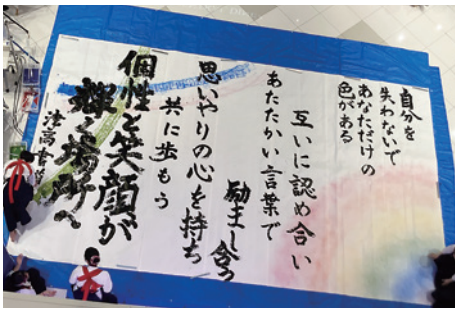 自分を
失わないで
あなただけの
色がある
互いに認め合い
あたたかい言葉で
励まし合う
思いやりの心を持ち
共に歩もう
個性と笑顔が
輝く場所へ
津高書道